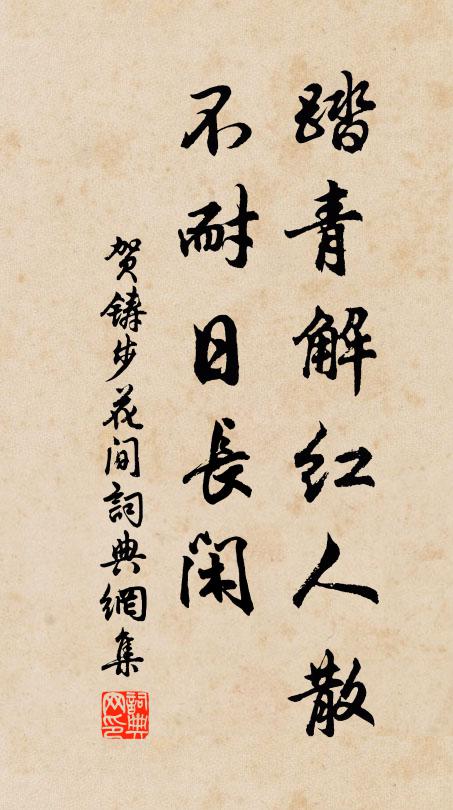 踏青解红人散
不耐日長闲
贺鑄步花间詞典網集
詞典网印